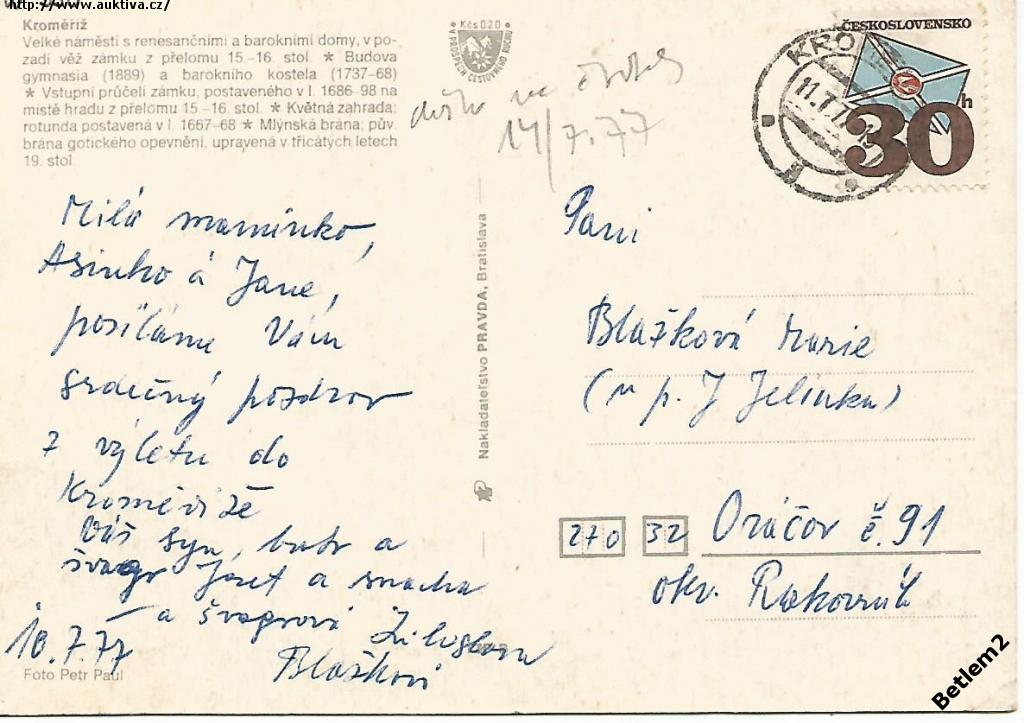 http://www.auktiva.cz/
Kroměříž
Velké náměstí s renesančními a barokními domy, v po-
zadí věž zámku z přelomu 15.-16. stol. * Budova
gymnasia (1889) a barokního kostela (1737-68)
* Vstupní průčelí zámku, postaveného v l. 1686-98 na
místě hradu z přelomu 15.-16. stol. * Květná zahrada;
rotunda postavená v l. 1667-68 * Mlýnská brána; pův.
brána gotického opevnění, upravená v třicátých letech
19. stol.
Kčs 0.20
V PROSPĚCH CESTOVNÉHO RUCHU
došlo ve
14/7.77
ČESKOSLOVENSKO
30h
KRO
11.7.77
Milá maminko,
Asinko a Jane,
posíláme Vám
srdečný pozdrav
z výletu do
Kroměříže
Váš syn, bratr a
švagr Josef a snacha
a švagrová
Blažkovi
10.7.77
Foto Petr Paul
Nakladateľstvo PRAVDA, Bratislava
Paní
Blažková Marie
(u p. J Jelínka)
270 32 Oráčov č. 91
okr. Rakovník
Betlem2